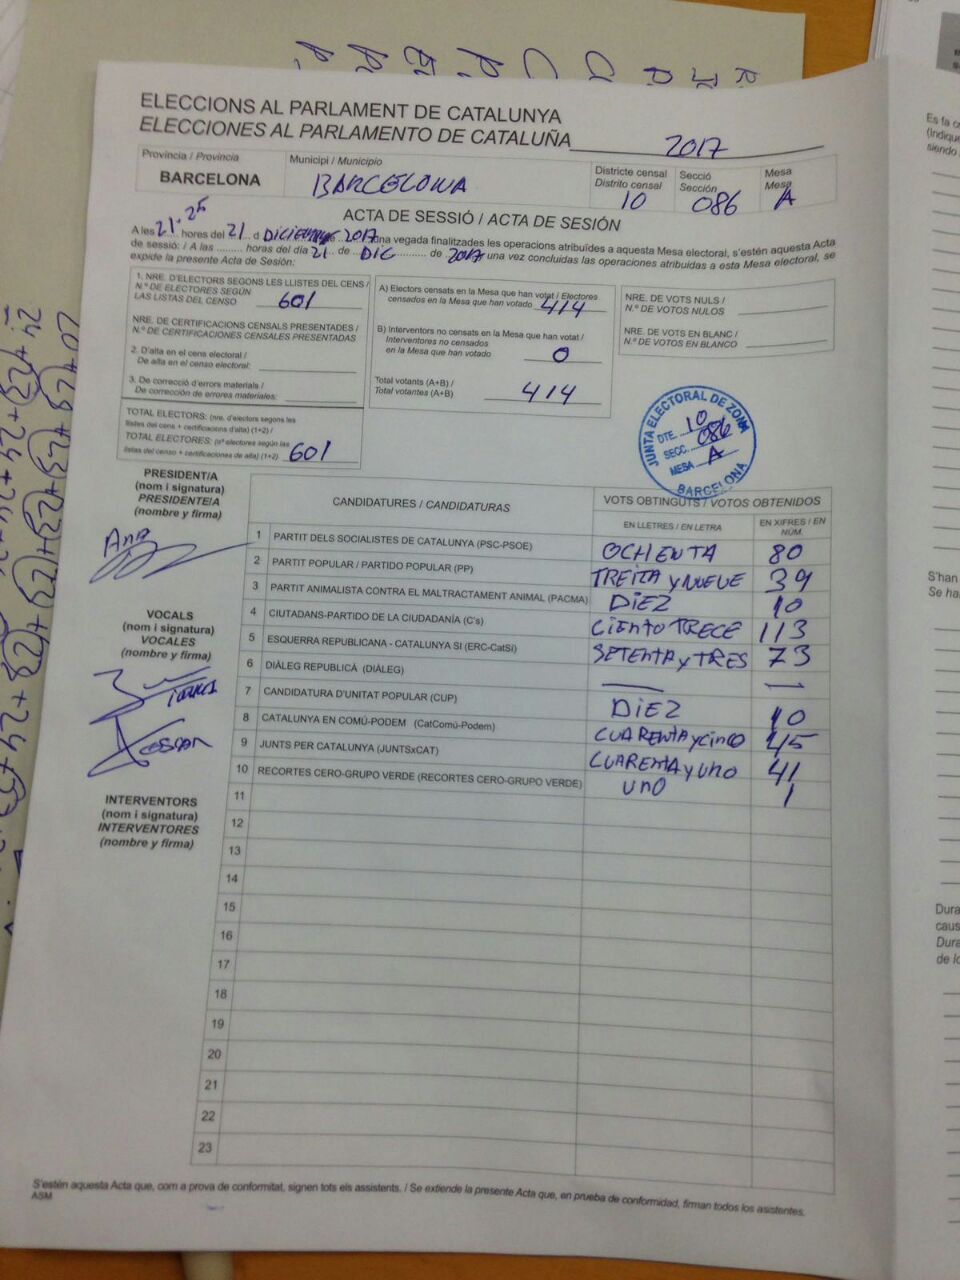 ELECCIONS AL PARLAMENT DE CATALUNYA
ELECCIONES AL PARLAMENTO DE CATALUÑA 2017
Provincia / Provincia
BARCELONA
Municipi / Municipio
BARCELONA
Districte censal
Distrito censal
10
Secció
Sección
086
Mesa
Mesa
A
ACTA DE SESSIÓ / ACTA DE SESIÓN
A les 21.25 hores del 21 d DICIEMBRE 2017 una vegada finalitzades les operacions atribuïdes a aquesta Mesa electoral, s'estén aquesta Acta
de sessió: / A las ......... horas del día 21 de DIC de 2017 una vez concluidas las operaciones atribuidas a esta Mesa electoral, se
expide la presente Acta de Sesión:
1. NRE. D'ELECTORS SEGONS LES LLISTES DEL CENS /
N.º DE ELECTORES SEGÚN
LAS LISTAS DEL CENSO 601
NRE. DE CERTIFICACIONS CENSALS PRESENTADES /
N.º DE CERTIFICACIONES CENSALES PRESENTADAS
2. D'alta en el cens electoral /
De alta en el censo electoral:
3. De correcció d'errors materials /
De corrección de errores materiales:
TOTAL ELECTORS: (nre. d'electors segons les
llistes del cens + certificacions d'alta) (1+2) /
TOTAL ELECTORES: (nº electores según las
listas del censo + certificaciones de alta) (1+2) 601
A) Electors censats en la Mesa que han votat / Electores
censados en la Mesa que han votado 414
B) Interventors no censats en la Mesa que han votat /
Interventores no censados
en la Mesa que han votado 0
Total votants (A+B) /
Total votantes (A+B) 414
NRE. DE VOTS NULS /
N.º DE VOTOS NULOS
NRE. DE VOTS EN BLANC /
N.º DE VOTOS EN BLANCO
JUNTA ELECTORAL DE ZONA
DTE. 10
SECC. 086
MESA A
BARCELONA
PRESIDENT/A
(nom i signatura)
PRESIDENTE/A
(nombre y firma)
Ana
VOCALS
(nom i signatura)
VOCALES
(nombre y firma)
INTERVENTORS
(nom i signatura)
INTERVENTORES
(nombre y firma)
CANDIDATURES / CANDIDATURAS
VOTS OBTINGUTS / VOTOS OBTENIDOS
EN LLETRES / EN LETRA
EN XIFRES / EN NÚM.
1 PARTIT DELS SOCIALISTES DE CATALUNYA (PSC-PSOE) OCHENTA 80
2 PARTIT POPULAR / PARTIDO POPULAR (PP) TREITA y NUEVE 39
3 PARTIT ANIMALISTA CONTRA EL MALTRACTAMENT ANIMAL (PACMA) DIEZ 10
4 CIUTADANS-PARTIDO DE LA CIUDADANÍA (C's) CIENTO TRECE 113
5 ESQUERRA REPUBLICANA - CATALUNYA SI (ERC-CatSí) SETENTA y TRES 73
6 DIÀLEG REPUBLICÀ (DIÀLEG) — —
7 CANDIDATURA D'UNITAT POPULAR (CUP) DIEZ 10
8 CATALUNYA EN COMÚ-PODEM (CatComú-Podem) CUARENTA y CINCO 45
9 JUNTS PER CATALUNYA (JUNTSxCAT) CUARENTA y UNO 41
10 RECORTES CERO-GRUPO VERDE (RECORTES CERO-GRUPO VERDE) UNO 1
11
12
13
14
15
16
17
18
19
20
21
22
23
S'estén aquesta Acta que, com a prova de conformitat, signen tots els assistents. / Se extiende la presente Acta que, en prueba de conformidad, firman todos los asistentes.
ASM
Es fa
(indique
siendo
S'han
Se ha
Dura
caus
Dura
de lo